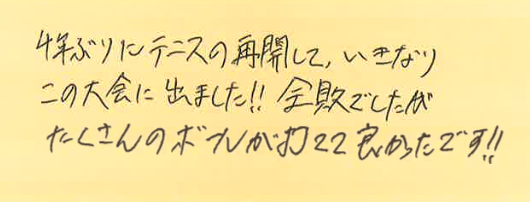 4年ぶりにテニスの再開して、いきなり
この大会に出ました!! 全敗でしたが
たくさんのボレが打てて良かったです!!